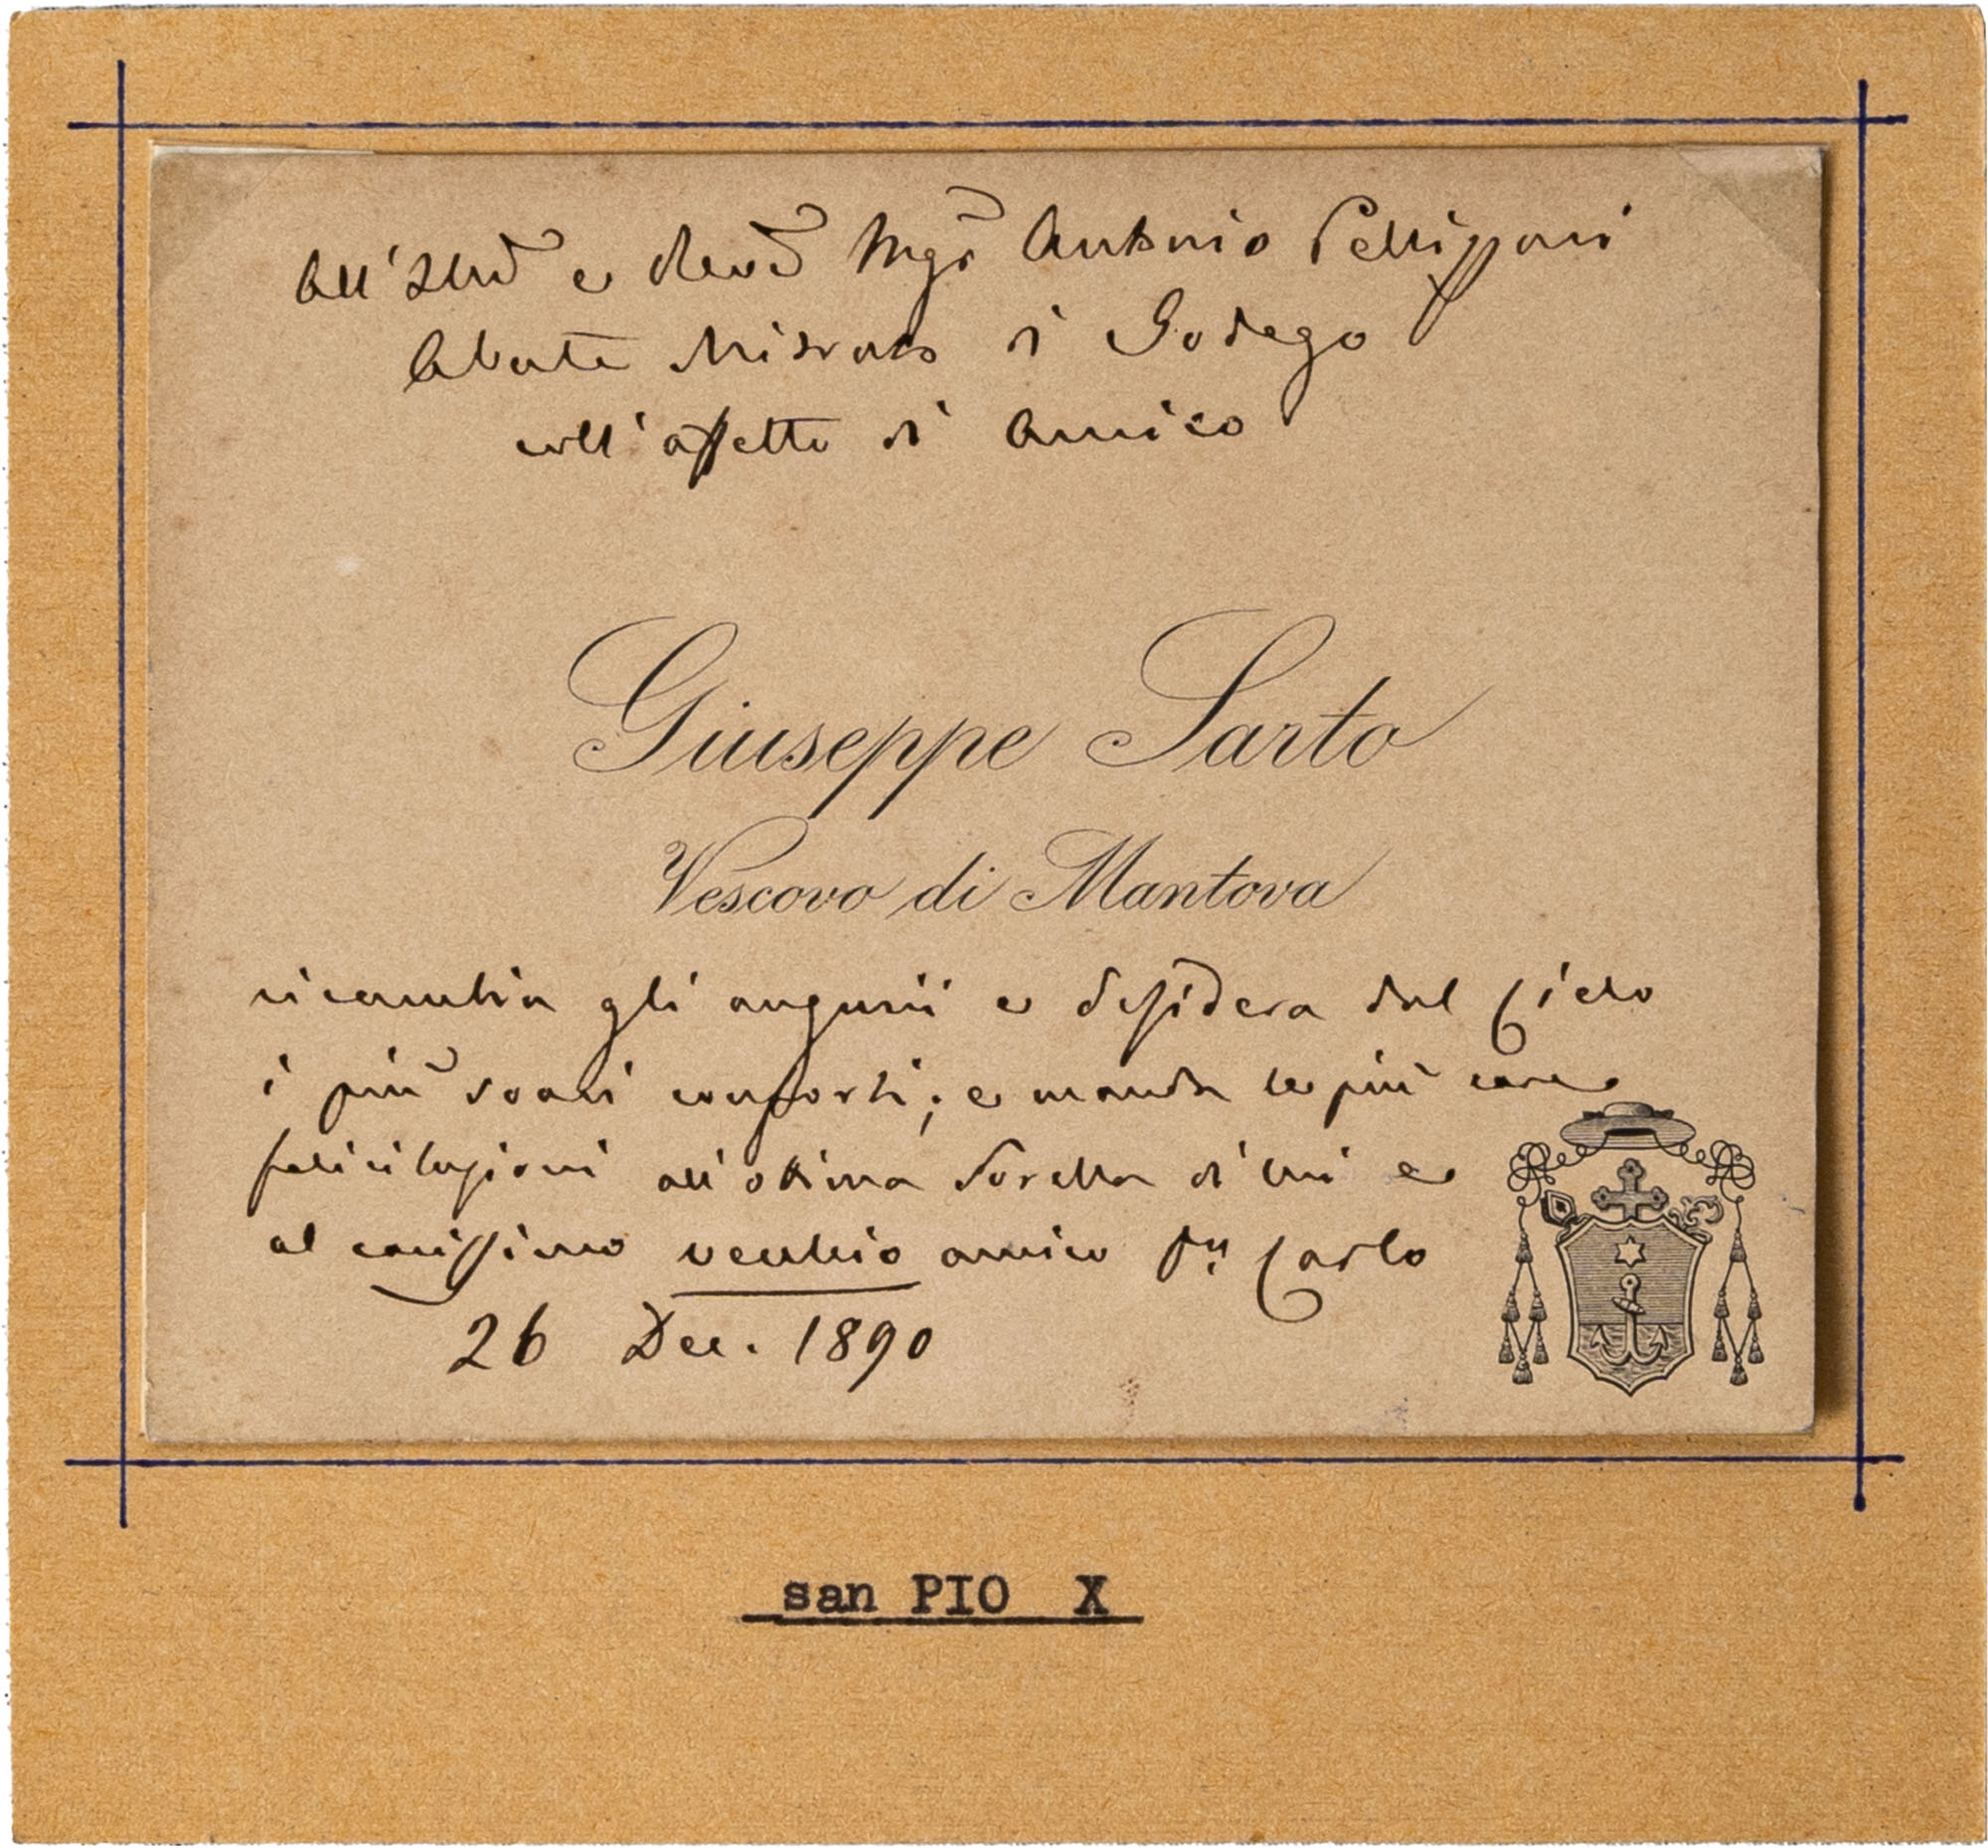 All'Illmō e Revdō Mgr̄ Antonio Pellizzari
Abate Mitrato di Godego
coll'affetto di Amico
Giuseppe Sarto
Vescovo di Mantova
ricambia gli augurii e desidera dal Cielo
i più soavi conforti; e manda le più care
felicitazioni all'ottima Sorella di Lui e
al carissimo vecchio amico Dn Carlo
26 Dec. 1890
san PIO X